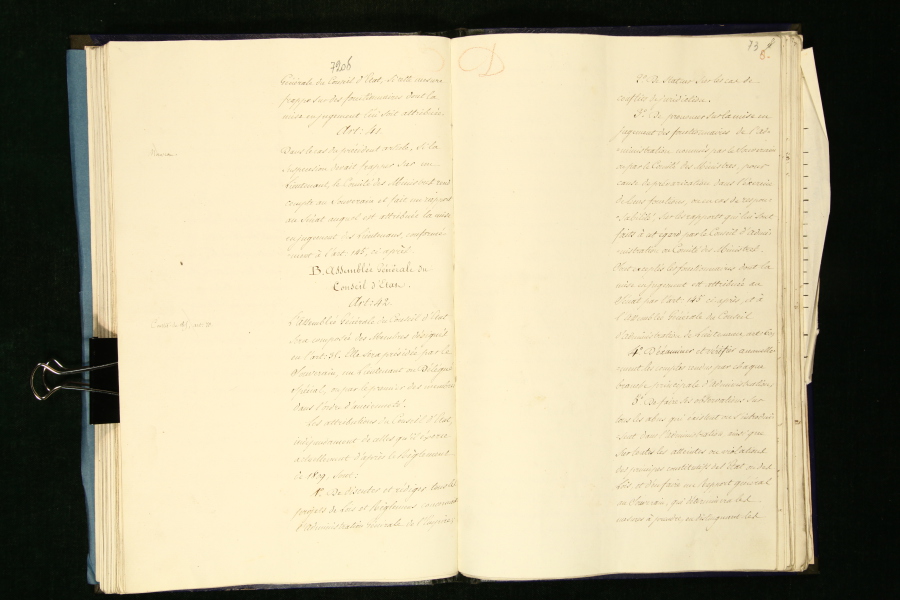 7206
Générale du Conseil d'Etat, si cette mesure
frappe sur des fonctionnaires dont la
mise en jugement lui soit attribuée.
Art: 41.
Dans le cas du précédent article, si la
suspension devait frapper sur un
Lieutenant, le Comité des Ministres rend
compte au Souverain et fait un rapport
au Sénat auquel est attribuée la mise
en jugement des Lieutenans, conformé-
ment à l'art: 145, ci après.
B. Assemblée Générale du
Conseil d'Etat.
Art: 42.
L'assemblée Générale du Conseil d'Etat
sera composée des Membres désignés
en l'art: 31. Elle sera présidée par le
Souverain, un Lieutenant ou Délégué
spécial, ou par le premier des membres
dans l'ordre d'ancienneté.
Les attributions du Conseil d'Etat,
indépendamment de celles qu'il exerce
actuellement d'après le Règlement
de 1809. sont:
1° De discuter et rédiger tous les
projets de Lois et Règlemens concernant
l'administration générale de l'Empire;
73
2° De statuer sur les cas de
conflits de juridiction.
3° De prononcer sur la mise en
jugement des fonctionnaires de l'ad-
ministration nommés par le Souverain
ou par le Comité des Ministres, pour
cause de prévarication dans l'exercice
de leurs fonctions, ou en cas de respon-
sabilité, sur les rapports qui lui sont
faits à cet égard par le Conseil d'admi-
nistration ou Comité des Ministres.
Sont exceptés les fonctionnaires dont la
mise en jugement est attribuée au
Sénat par l'art: 145 ci après, et à
l'assemblée Générale du Conseil
d'administration des Lieutenances
4° D'examiner et vérifier annuelle-
ment les comptes rendus par chaque
branche principale d'administration
5° De faire des observations sur
tous les abus qui existent ou s'introdui-
sent dans l'administration ainsi que
sur toutes les atteintes ou violations
des principes constitutifs de l'Etat ou des
Lois, et d'en faire un Rapport général
au Souverain, qui déterminera les
mesures à prendre, en distinguant les